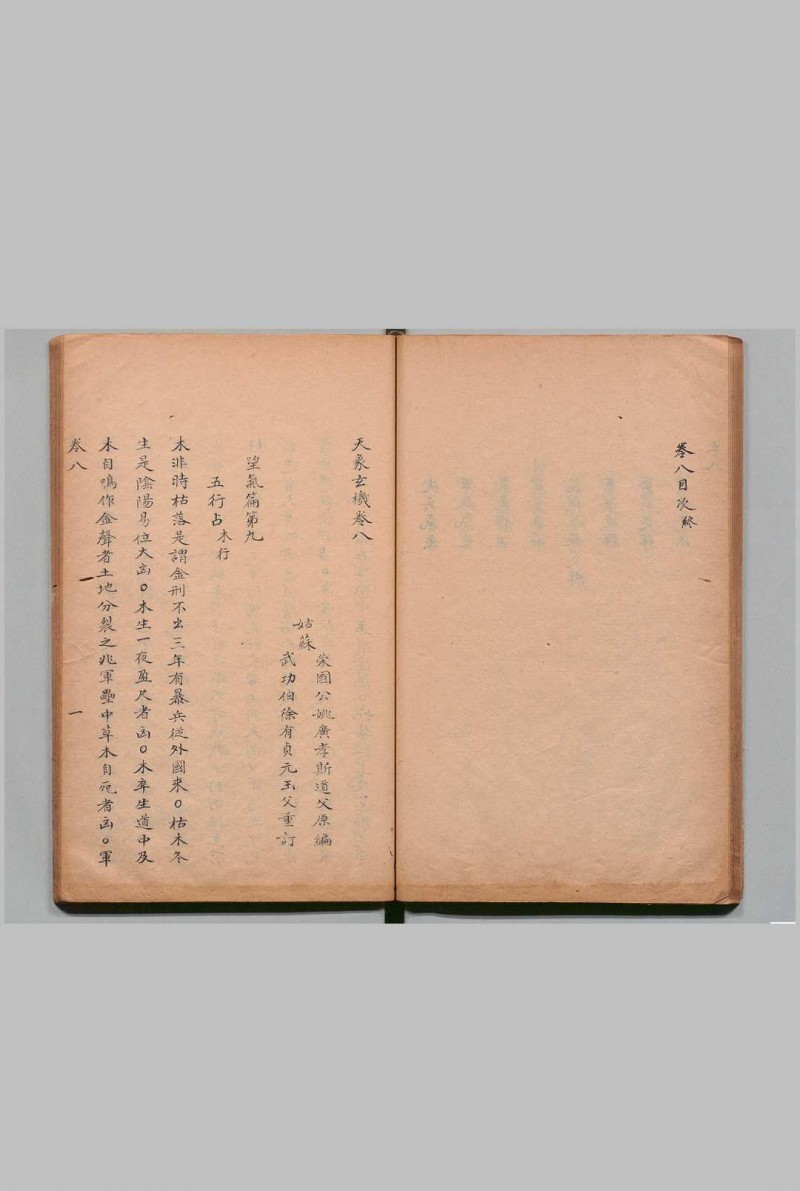 卷八目次終
天象玄機卷八
姑蘇
榮國公姚廣孝斯道父原編
武功伯徐有貞元玉父重訂
望氣篇第九
五行占木行
木非時枯落是謂金刑不出三年有暴兵從外國來○枯木冬
生是陰陽易位大凶○木生一夜盈尺者凶○木卒生道中及
木自鳴作金聲者土地分裂之兆軍壘中草木自死者凶○軍
卷八 一